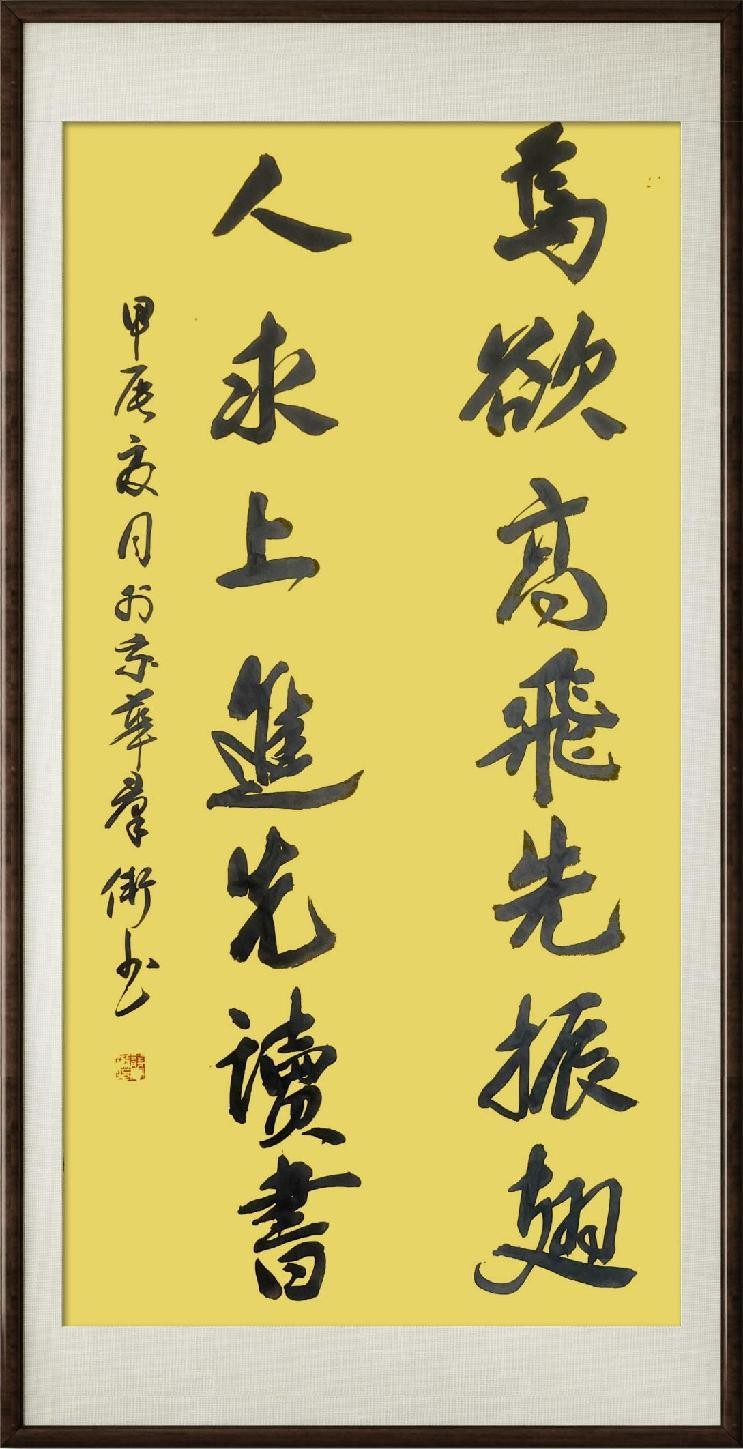 鳥欲高飛先振翅
人求上進先讀書
甲辰夏月於京華羣衛书